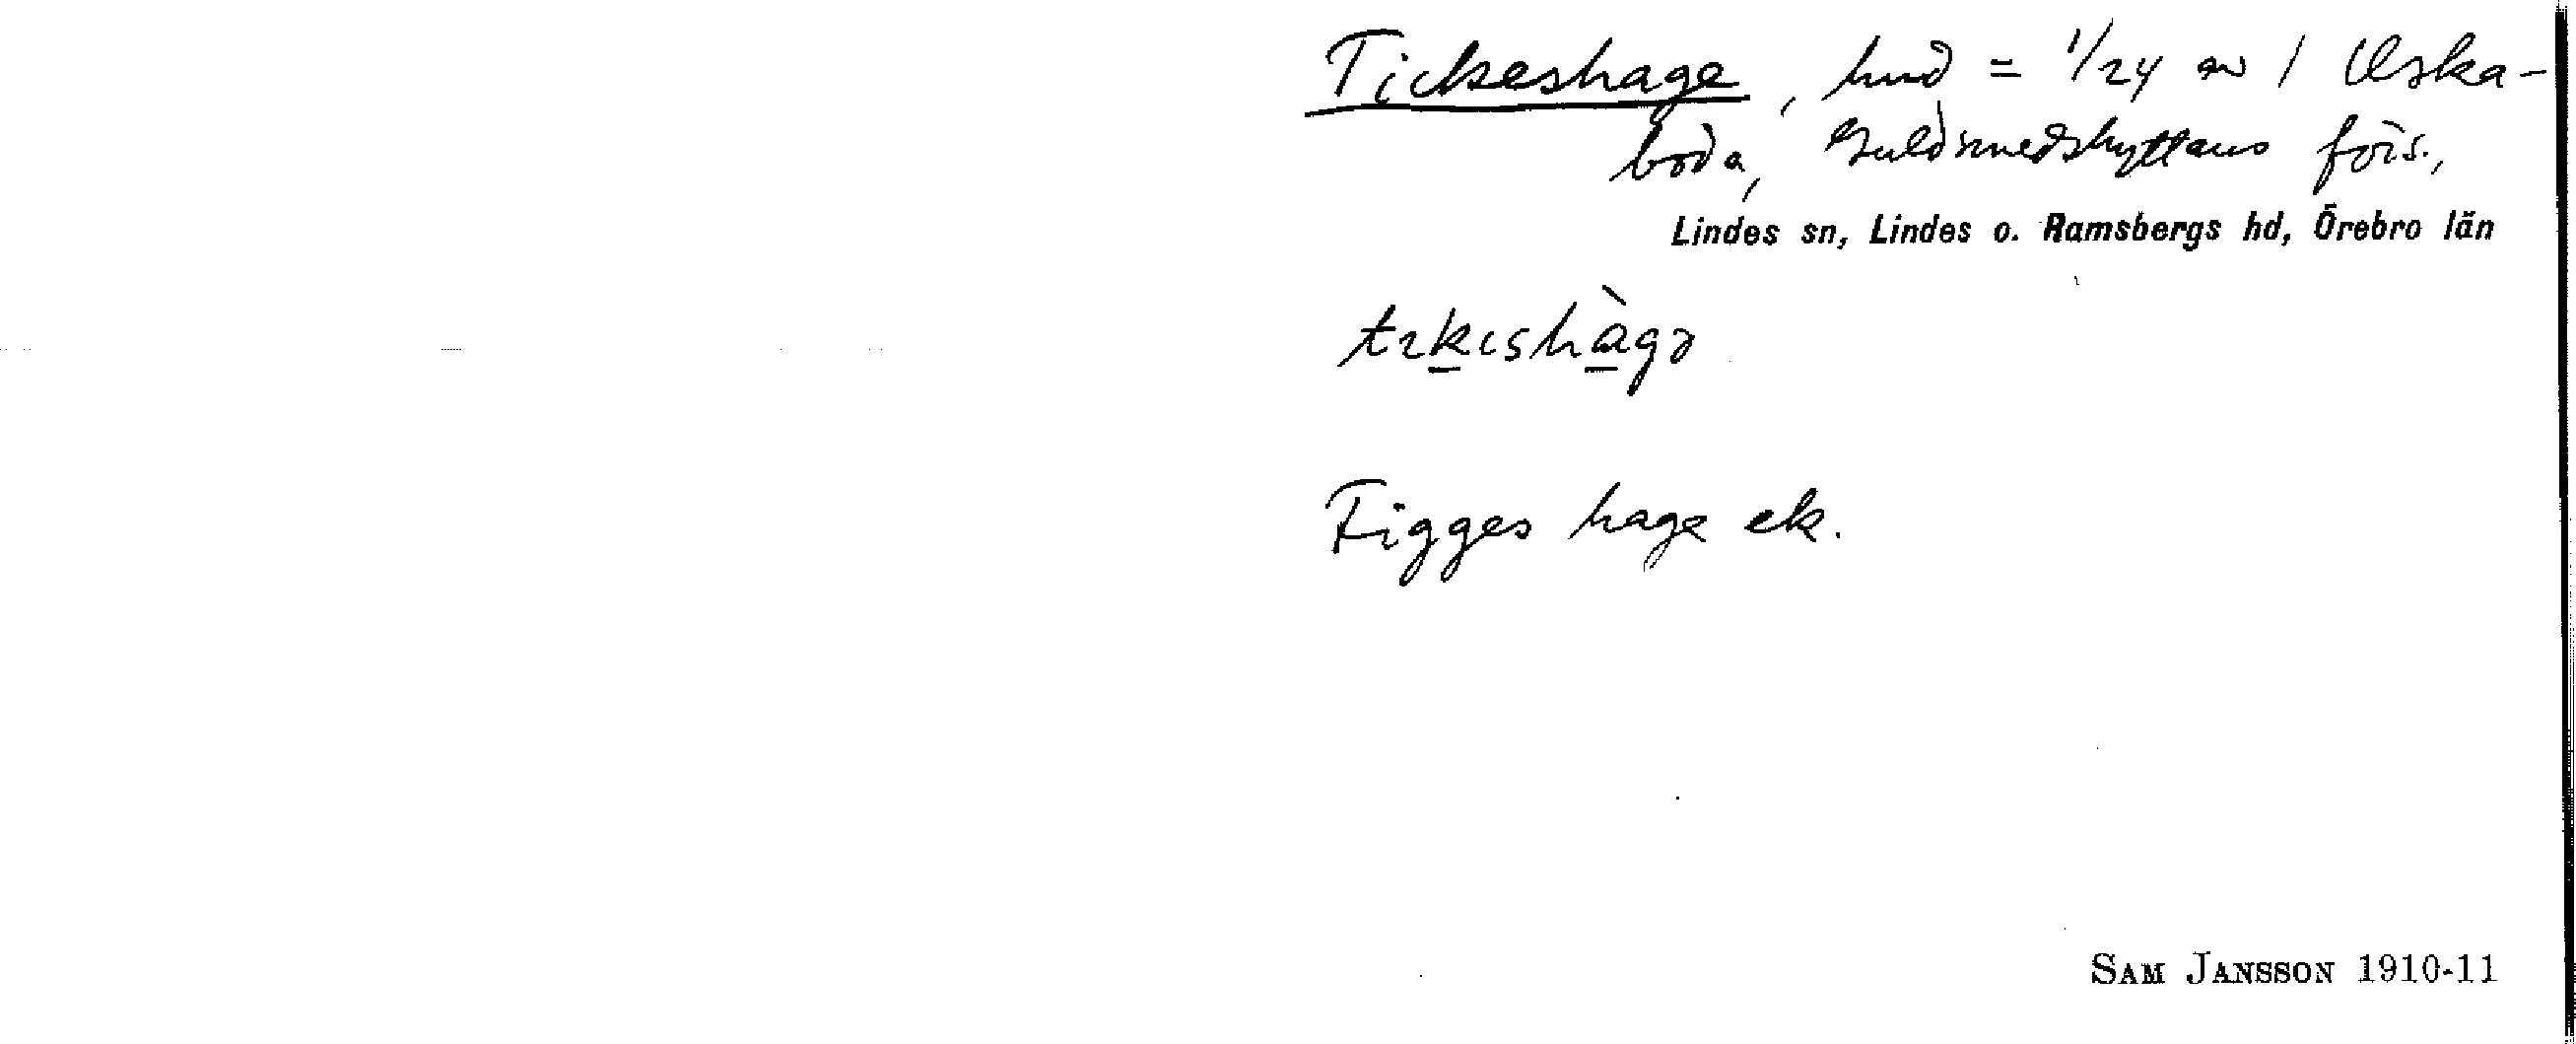 Tickeshage, hmd = 1/24 av 1 Uska-
boda, Guldsmedshyttans förs.,
Lindes sn, Lindes o. Ramsbergs hd, Örebro län
Figges hage ek.
SAM JANSSON 1910-11